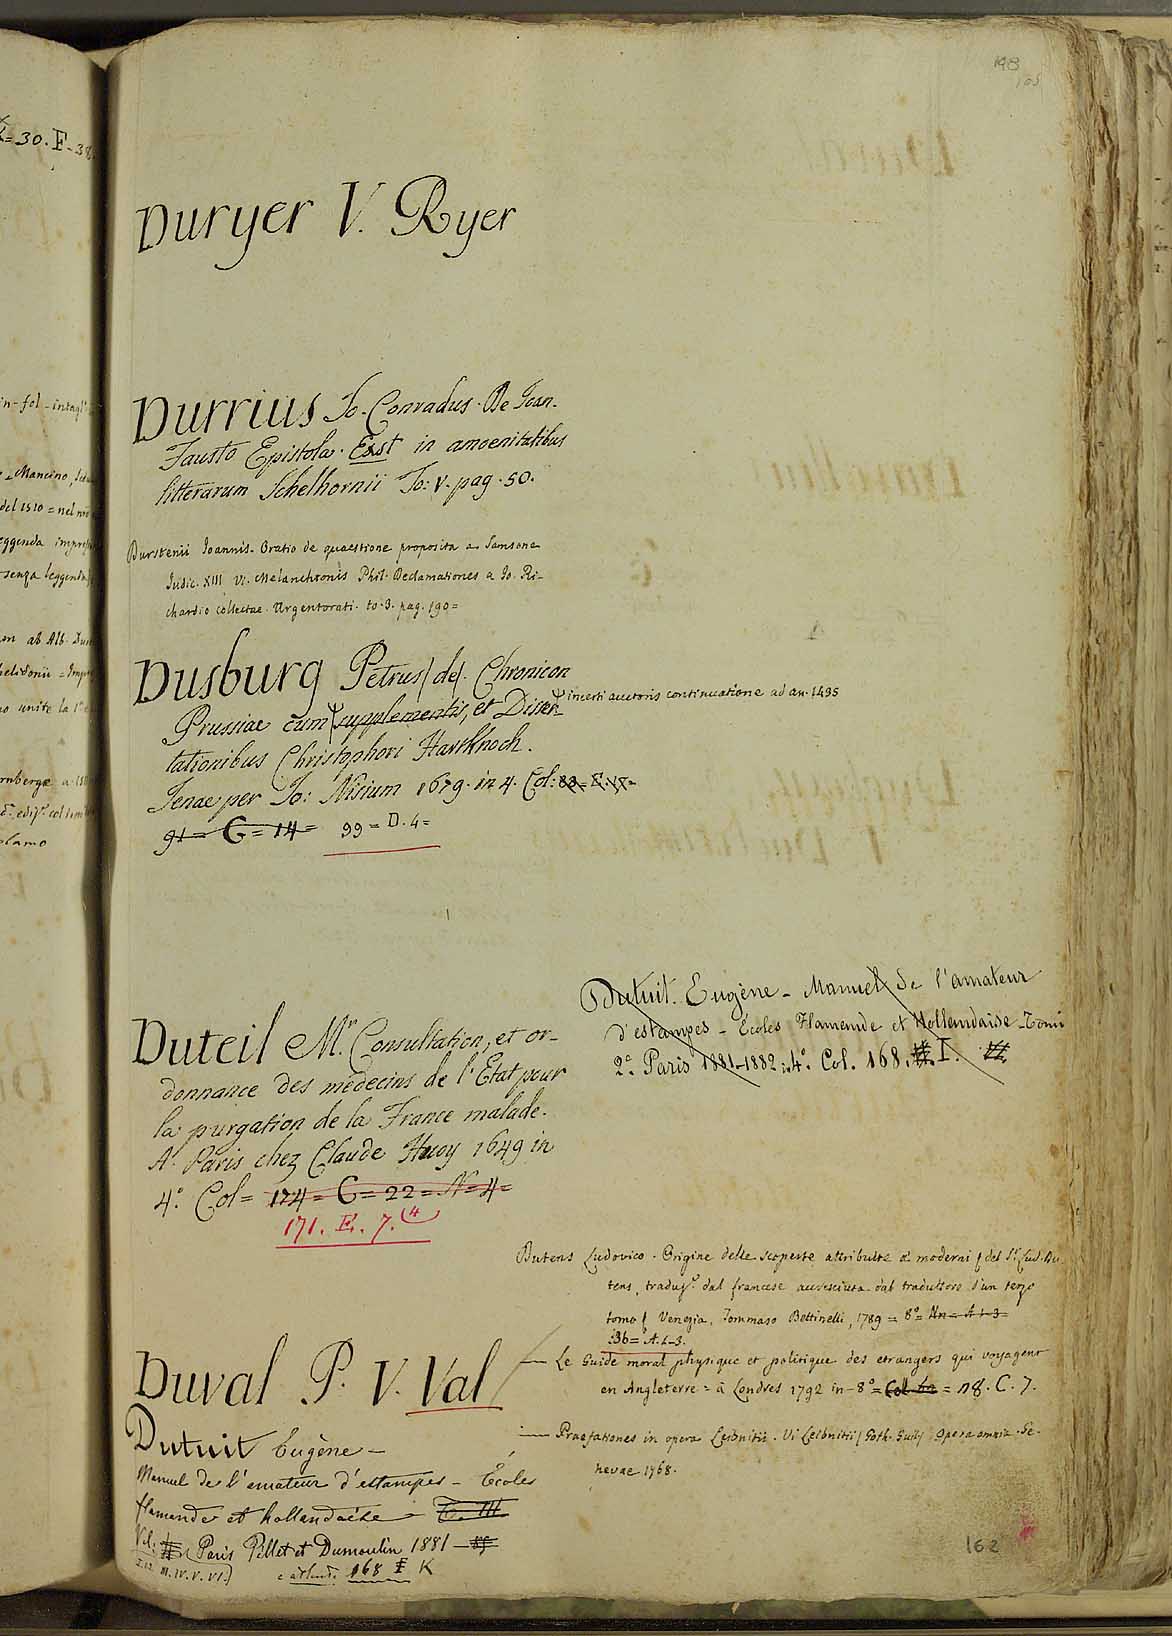 198
105
Duryer V. Ryer
Durrius Jo. Conradus. De Joan.
Fausto Epistola. Exst in amoenitatibus
litterarum Schelhornii To: V. pag. 50.
Durstenii Joannis. Oratio de quaestione proposita a Samsone
Judic. XIII Vi. Melanchtonis Phil. Declamationes a Jo. Ri-
chardio collectae. Argentorati. to. 3. pag. 190=
Dusburg Petrus (de). Chronicon
incerti auctoris continuatione ad an. 1495
Prussiae cum supplementis, et Disser-
tationibus Christophori Hartknoch.
Jenae per Jo: Nisium 1679. in 4. Col:
91 = G = 14 = 99 = D. 4 =
Dutuit. Eugène - Manuel de l'amateur
d'estampes - Écoles Flamende et Hollandaise - Tomi
2.° Paris 1881-1882 in 4.° Col. 168. I.
Duteil Mr. Consultation, et or-
donnance des médecins de l'Etat pour
la purgation de la France malade.
A Paris chez Claude Huoy 1649 in
4.° Col = 174 = G = 22 = N° 4 =
171. E. 7. (4
Dutens Ludovico. Origine delle scoperte attribuite a' moderni (del Sr. Lud. Du-
tens, traduz.e dal francese accresciuta dal traduttore d'un terzo
tomo) Venezia, Tommaso Bettinelli, 1789 = 8° = Nn = A 1-3 =
Bb = A. 1-3.
Duval P. V. Val
— Le Guide moral physique et politique des etrangers qui voyagent
en Angleterre = à Londres 1792 in - 8° = = 118. C. 7.
— Praefationes in opera Leibnitii. Vi Leibnitii (Goth. Guil) Opera omnia. Ge-
nevae 1768.
Dutuit Eugène -
Manuel de l'amateur d'estampes - Écoles
flamande et hollandaise - T. III
Vol. Paris Pillet et Dumoulin 1881 -
I. II. III. IV. V. VI.)
168 K
162